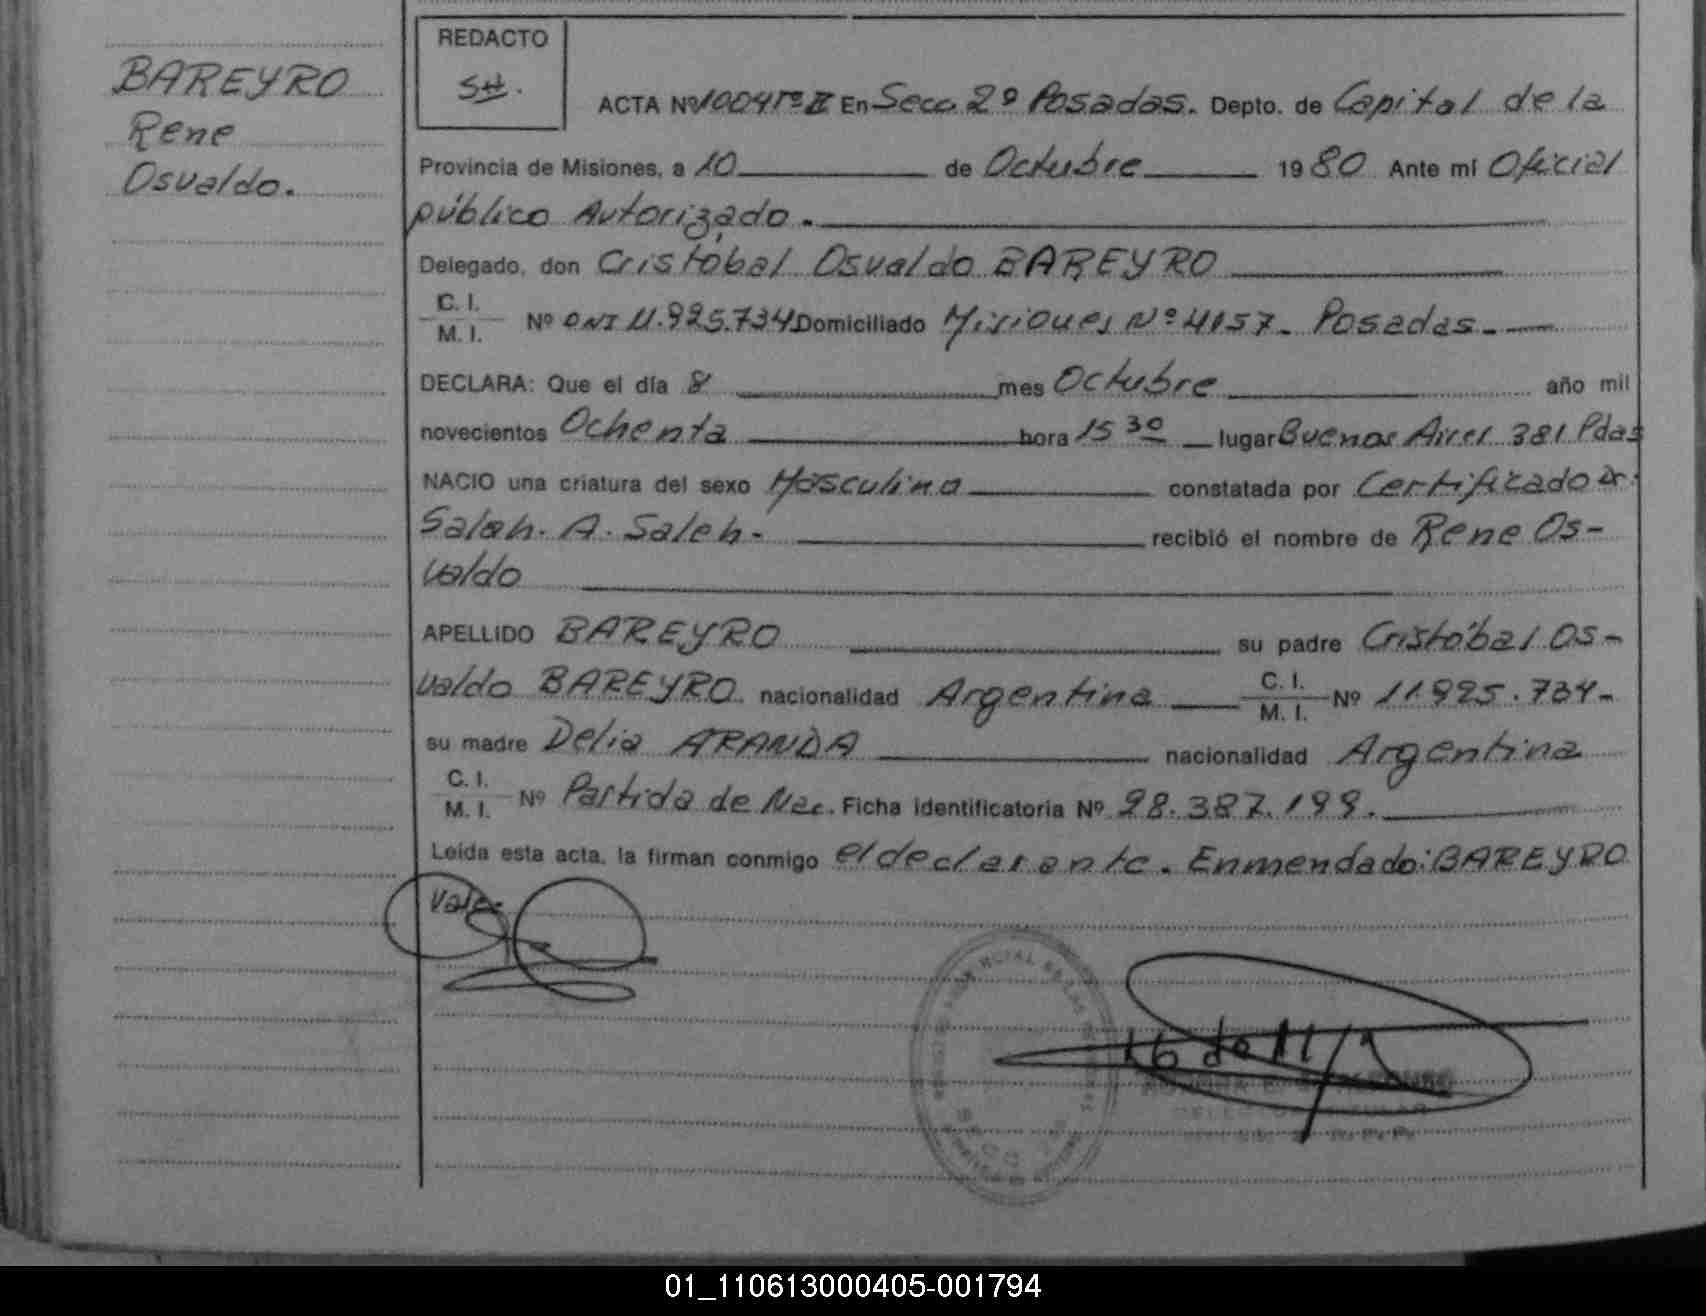 BAREYRO
Rene
Osvaldo.
REDACTO
SH.
ACTA Nº 1004 Tº II En Secc. 2º Posadas. Depto. de Capital de la
Provincia de Misiones, a 10 de Octubre 1980 Ante mi Oficial
público Autorizado.
Delegado, don Cristóbal Osvaldo BAREYRO
C. I.
M. I. Nº DNI 11.925.734 Domiciliado Misiones Nº 4157. Posadas.
DECLARA: Que el día 8 mes Octubre año mil
novecientos Ochenta hora 15 30 lugar Buenos Aires 381 Pdas
NACIO una criatura del sexo Masculino constatada por Certificado Dr.
Saleh. A. Saleh. recibió el nombre de Rene Os-
valdo
APELLIDO BAREYRO su padre Cristóbal Os-
valdo BAREYRO. nacionalidad Argentina C. I.
M. I. Nº 11.925.734-
su madre Delia ARANDA nacionalidad Argentina
C. I.
M. I. Nº Partida de Nac. Ficha identificatoria Nº 28.387.199.
Leída esta acta, la firman conmigo el declarante. Enmendado: BAREYRO
Vale.
01_110613000405-001794